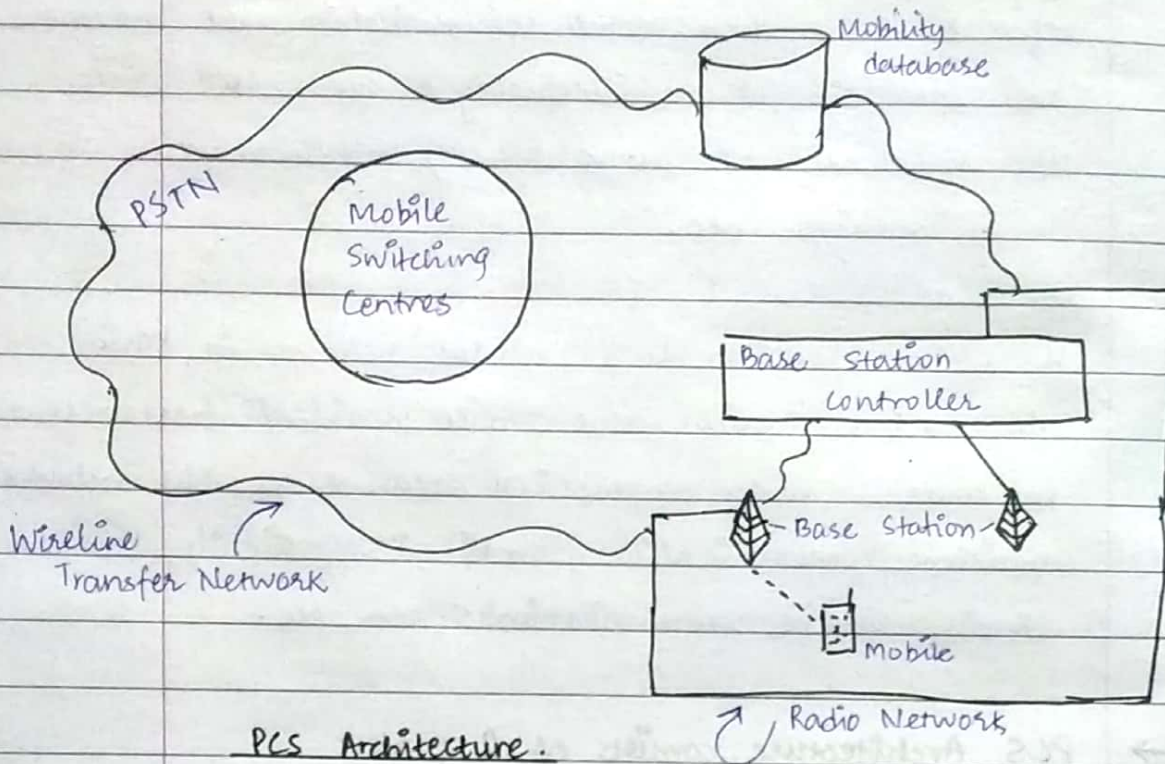 Mobility
database
PSTN
Mobile
Switching
Centres
Base Station
Controller
Base Station
Wireline
Transfer Network
Mobile
Radio Network
PCS Architecture.